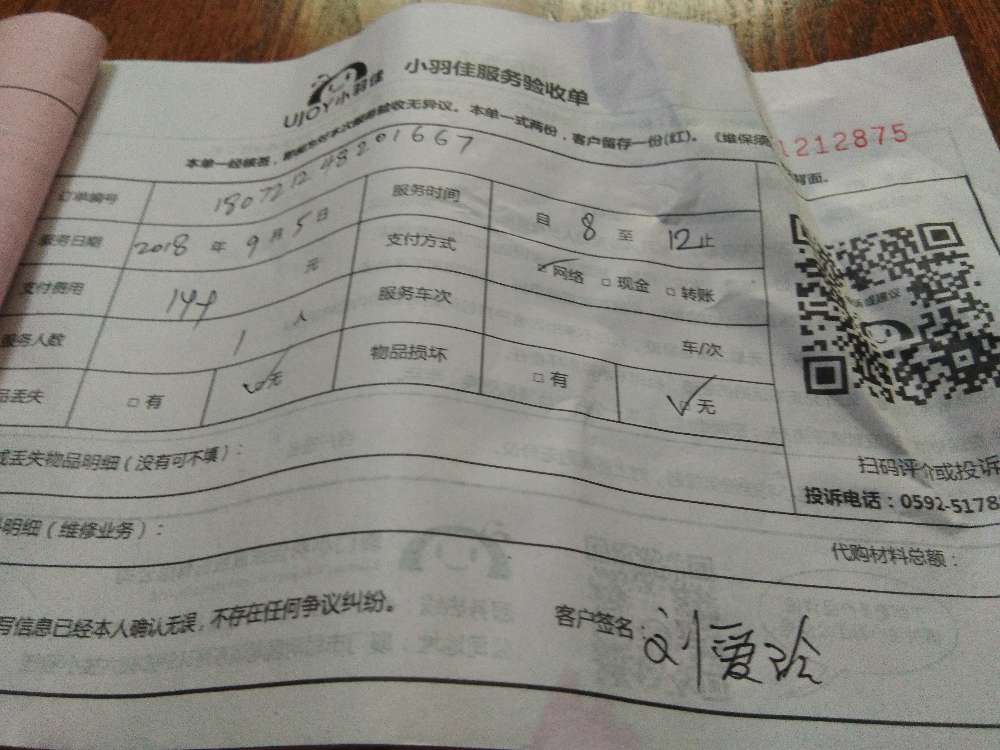 UJOY小羽佳 小羽佳服务验收单
本单一经核签，本次服务验收无异议。本单一式两份，客户留存一份(红)。（维保须
1212875
背面。
订单编号 180721248201667 服务时间 自 8 至 12 止
服务日期 2018 年 9 月 5 日 支付方式 网络 □ 现金 □ 转账
支付费用 144 元 服务车次 车/次
服务人数 1 人 物品损坏 □ 有 □ 无
品丢失 □ 有 □ 无
或丢失物品明细（没有可不填）：
扫码评价或投诉
投诉电话：0592-5178
明细（维修业务）： 代购材料总额：
写信息已经本人确认无误，不存在任何争议纠纷。 客户签名：刘爱玲